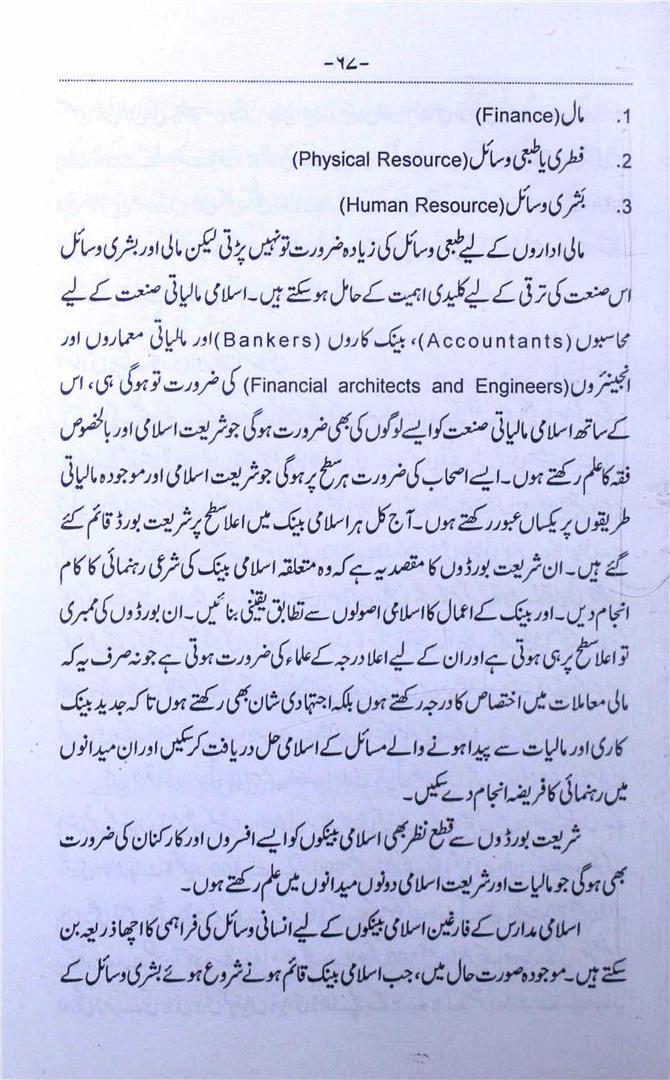 -۶۷-
1. مال (Finance)
2. فطری یا طبعی وسائل (Physical Resource)
3. بشری وسائل (Human Resource)
مالی اداروں کے لیے طبعی وسائل کی زیادہ ضرورت تو نہیں پڑتی لیکن مالی اور بشری وسائل
اس صنعت کی ترقی کے لیے کلیدی اہمیت کے حامل ہو سکتے ہیں۔ اسلامی مالیاتی صنعت کے لیے
محاسبوں (Accountants)، بینک کاروں (Bankers) اور مالیاتی معماروں اور
انجینئروں (Financial architects and Engineers) کی ضرورت تو ہوگی ہی، اس
کے ساتھ اسلامی مالیاتی صنعت کو ایسے لوگوں کی بھی ضرورت ہوگی جو شریعت اسلامی اور بالخصوص
فقہ کا علم رکھتے ہوں۔ ایسے اصحاب کی ضرورت ہر سطح پر ہوگی جو شریعت اسلامی اور موجودہ مالیاتی
طریقوں پر یکساں عبور رکھتے ہوں۔ آج کل ہر اسلامی بینک میں اعلا سطح پر شریعت بورڈ قائم کئے
گئے ہیں۔ ان شریعت بورڈوں کا مقصد یہ ہے کہ وہ متعلقہ اسلامی بینک کی شرعی رہنمائی کا کام
انجام دیں۔ اور بینک کے اعمال کا اسلامی اصولوں سے تطابق یقینی بنائیں۔ ان بورڈوں کی ممبری
تو اعلا سطح پر ہی ہوتی ہے اور ان کے لیے اعلا درجہ کے علماء کی ضرورت ہوتی ہے جو نہ صرف یہ کہ
مالی معاملات میں اختصاص کا درجہ رکھتے ہوں بلکہ اجتہادی شان بھی رکھتے ہوں تاکہ جدید بینک
کاری اور مالیات سے پیدا ہونے والے مسائل کے اسلامی حل دریافت کر سکیں اور ان میدانوں
میں رہنمائی کا فریضہ انجام دے سکیں۔
شریعت بورڈوں سے قطع نظر بھی اسلامی بینکوں کو ایسے افسروں اور کارکنان کی ضرورت
بھی ہوگی جو مالیات اور شریعت اسلامی دونوں میدانوں میں علم رکھتے ہوں۔
اسلامی مدارس کے فارغین اسلامی بینکوں کے لیے انسانی وسائل کی فراہمی کا اچھا ذریعہ بن
سکتے ہیں۔ موجودہ صورت حال میں، جب اسلامی بینک قائم ہونے شروع ہوئے بشری وسائل کے